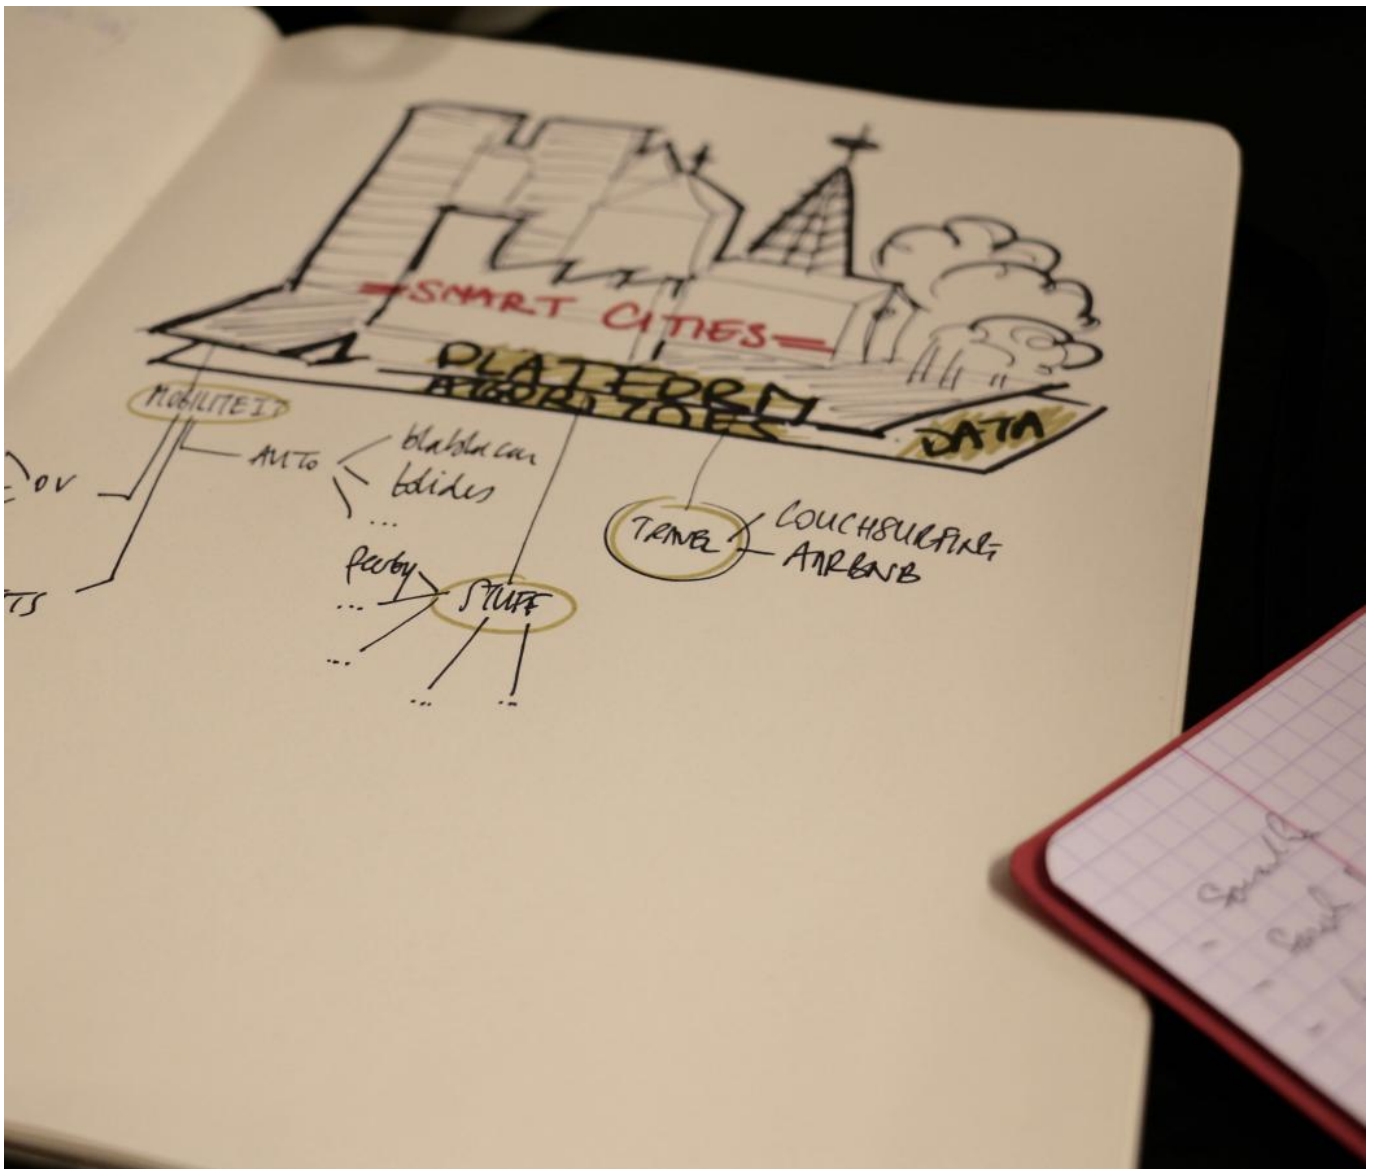 = SMART CITIES =
PLATFORM
ALGORITMES
DATA
MOBILITEIT
AUTO
blablacar
...
OV
TS
TRAVEL
COUCHSURFING
AIRBNB
peerby
STUFF
...
...
...
...